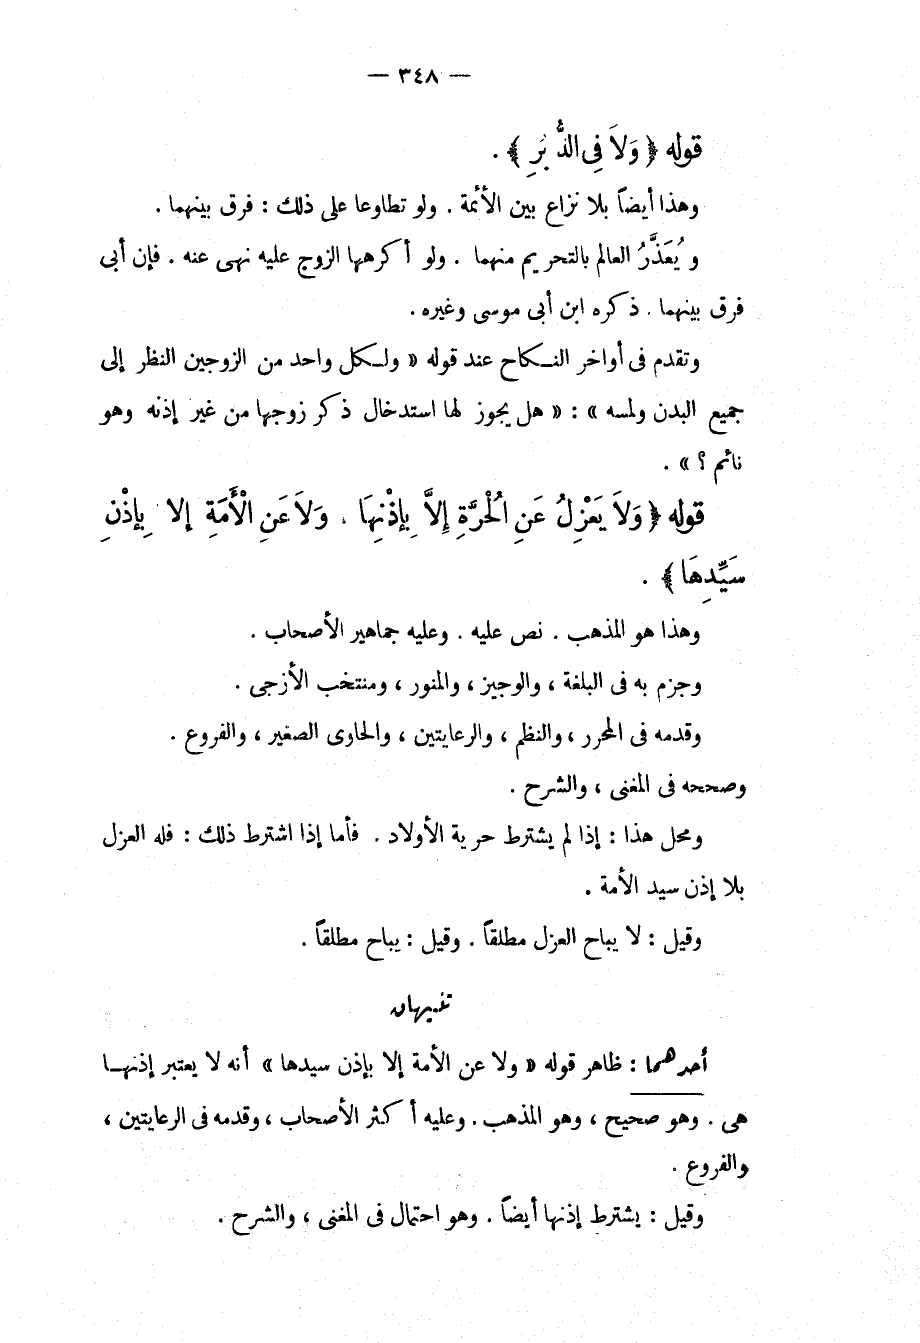 — ٣٤٨ —
قوله ﴿ وَلاَ فِى الدُّبُرِ ﴾ .
وهذا أيضاً بلا نزاع بين الأئمة . ولو تطاوعا على ذلك : فرق بينهما .
ويُعَذَّرُ العالم بالتحريم منهما . ولو أكرهها الزوج عليه نهى عنه . فإن أبى
فرق بينهما . ذكره ابن أبى موسى وغيره .
وتقدم فى أواخر النكاح عند قوله « ولكل واحد من الزوجين النظر إلى
جميع البدن ولمسه » : « هل يجوز لها استدخال ذكر زوجها من غير إذنه وهو
نائم ؟ » .
قوله ﴿ وَلاَ يَعْزِلُ عَنِ الْحُرَّةِ إِلاَّ بِإِذْنِهَا ، وَلاَ عَنِ الْأَمَةِ إلا بِإِذْنِ
سَيِّدِهَا ﴾ .
وهذا هو المذهب . نص عليه . وعليه جماهير الأصحاب .
وجزم به فى البلغة ، والوجيز ، والمنور ، ومنتخب الأزجى .
وقدمه فى المحرر ، والنظم ، والرعايتين ، والحاوى الصغير ، والفروع .
وصححه فى المغنى ، والشرح .
ومحل هذا : إذا لم يشترط حرية الأولاد . فأما إذا اشترط ذلك : فله العزل
بلا إذن سيد الأمة .
وقيل : لا يباح العزل مطلقاً . وقيل : يباح مطلقاً .
تنبيهان
أحدهما : ظاهر قوله « ولا عن الأمة إلا بإذن سيدها » أنه لا يعتبر إذنها
هى . وهو صحيح ، وهو المذهب . وعليه أكثر الأصحاب ، وقدمه فى الرعايتين ،
والفروع .
وقيل : يشترط إذنها أيضاً . وهو احتمال فى المغنى ، والشرح .